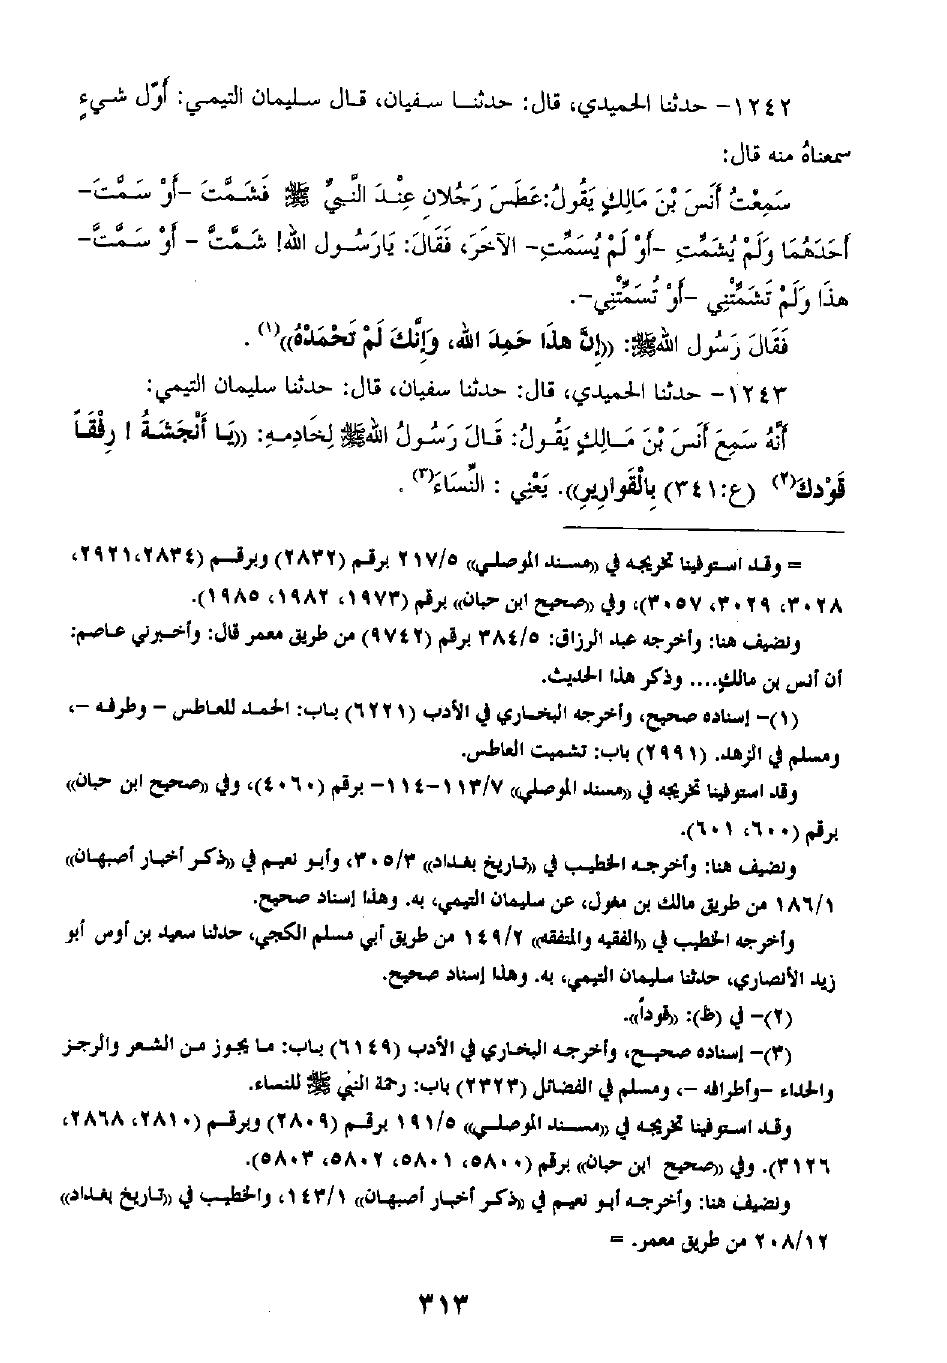 ١٢٤٢- حدثنا الحميدي، قال: حدثنا سفيان، قال سليمان التيمي: أَوّل شيءٍ
سمعناهُ منه قال:
سَمِعْتُ أَنَسَ بْنَ مَالِكٍ يَقُولُ: عَطَسَ رَجُلانِ عِنْدَ النَّبِيِّ ﷺ فَشَمَّتَ -أَوْ سَمَّتَ-
أَحَدَهُمَا وَلَمْ يُشَمِّتِ -أَوْ لَمْ يُسَمِّتِ- الآخَرَ، فَقَالَ: يَارَسُولَ الله! شَمَّتَّ - أَوْ سَمَّتَّ-
هذَا وَلَمْ تَشَمِّتْنِي -أَوْ تُسَمِّتْنِي-.
فَقَالَ رَسُولُ اللهِ ﷺ: ((إِنَّ هذَا حَمِدَ الله، وَإِنَّكَ لَمْ تَحْمَدْهُ))(١) .
١٢٤٣- حدثنا الحميدي، قال: حدثنا سفيان، قال: حدثنا سليمان التيمي:
أَنَّهُ سَمِعَ أَنَسَ بْنَ مَالِكٍ يَقُولُ: قَالَ رَسُولُ اللهِ ﷺ لِخَادِمِهِ: ((يَا أَنْجَشَةُ ! رِفْقَاً
قَوْدكَ(٢) (ع:٣٤١) بِالْقَوَارِيرِ)). يَعْنِي : النِّسَاءَ(٣) .
= وقد استوفينا تخريجه في ((مسند الموصلي)) ٢١٧/٥ برقم (٢٨٣٢) وبرقم (٢٨٣٤، ٢٩٢١،
٣٠٢٨، ٣٠٢٩، ٣٠٥٧)، وفي ((صحيح ابن حبان)) برقم (١٩٧٣، ١٩٨٢، ١٩٨٥).
ونضيف هنا: وأخرجه عبد الرزاق: ٣٨٤/٥ برقم (٩٧٤٢) من طريق معمر قال: وأخبرني عاصم:
أن أنس بن مالكٍ.... وذكر هذا الحديث.
(١)- إسناده صحيح، وأخرجه البخاري في الأدب (٦٢٢١) باب: الحمد للعاطس - وطرفه -،
ومسلم في الزهد. (٢٩٩١) باب: تشميت العاطس.
وقد استوفينا تخريجه في ((مسند الموصلي)) ١١٣/٧-١١٤- برقم (٤٠٦٠)، وفي ((صحيح ابن حبان))
برقم (٦٠٠، ٦٠١).
ونضيف هنا: وأخرجه الخطيب في ((تاريخ بغداد)) ٣٠٥/٣، وأبو نعيم في ((ذكر أخبار أصبهان))
١٨٦/١ من طريق مالك بن مغول، عن سليمان التيمي، به. وهذا إسناد صحيح.
وأخرجه الخطيب في ((الفقيه والمتفقه)) ١٤٩/٢ من طريق أبي مسلم الكجي، حدثنا سعيد بن أوس أبو
زيد الأنصاري، حدثنا سليمان التيمي، به. وهذا إسناد صحيح.
(٢)- في (ظ): ((قوداً)).
(٣)- إسناده صحيح، وأخرجه البخاري في الأدب (٦١٤٩) باب: ما يجوز من الشعر والرجز
والحداء -وأطرافه -، ومسلم في الفضائل (٢٣٢٣) باب: رحمة النبي ﷺ للنساء.
وقد استوفينا تخريجه في ((مسند الموصلي)) ١٩١/٥ برقم (٢٨٠٩) وبرقم (٢٨١٠، ٢٨٦٨،
٣١٢٦). وفي ((صحيح ابن حبان)) برقم (٥٨٠٠، ٥٨٠١، ٥٨٠٢، ٥٨٠٣).
ونضيف هنا: وأخرجه أبو نعيم في ((ذكر أخبار أصبهان)) ١٤٣/١، والخطيب في ((تاريخ بغداد))
٢٠٨/١٢ من طريق معمر. =
٣١٣